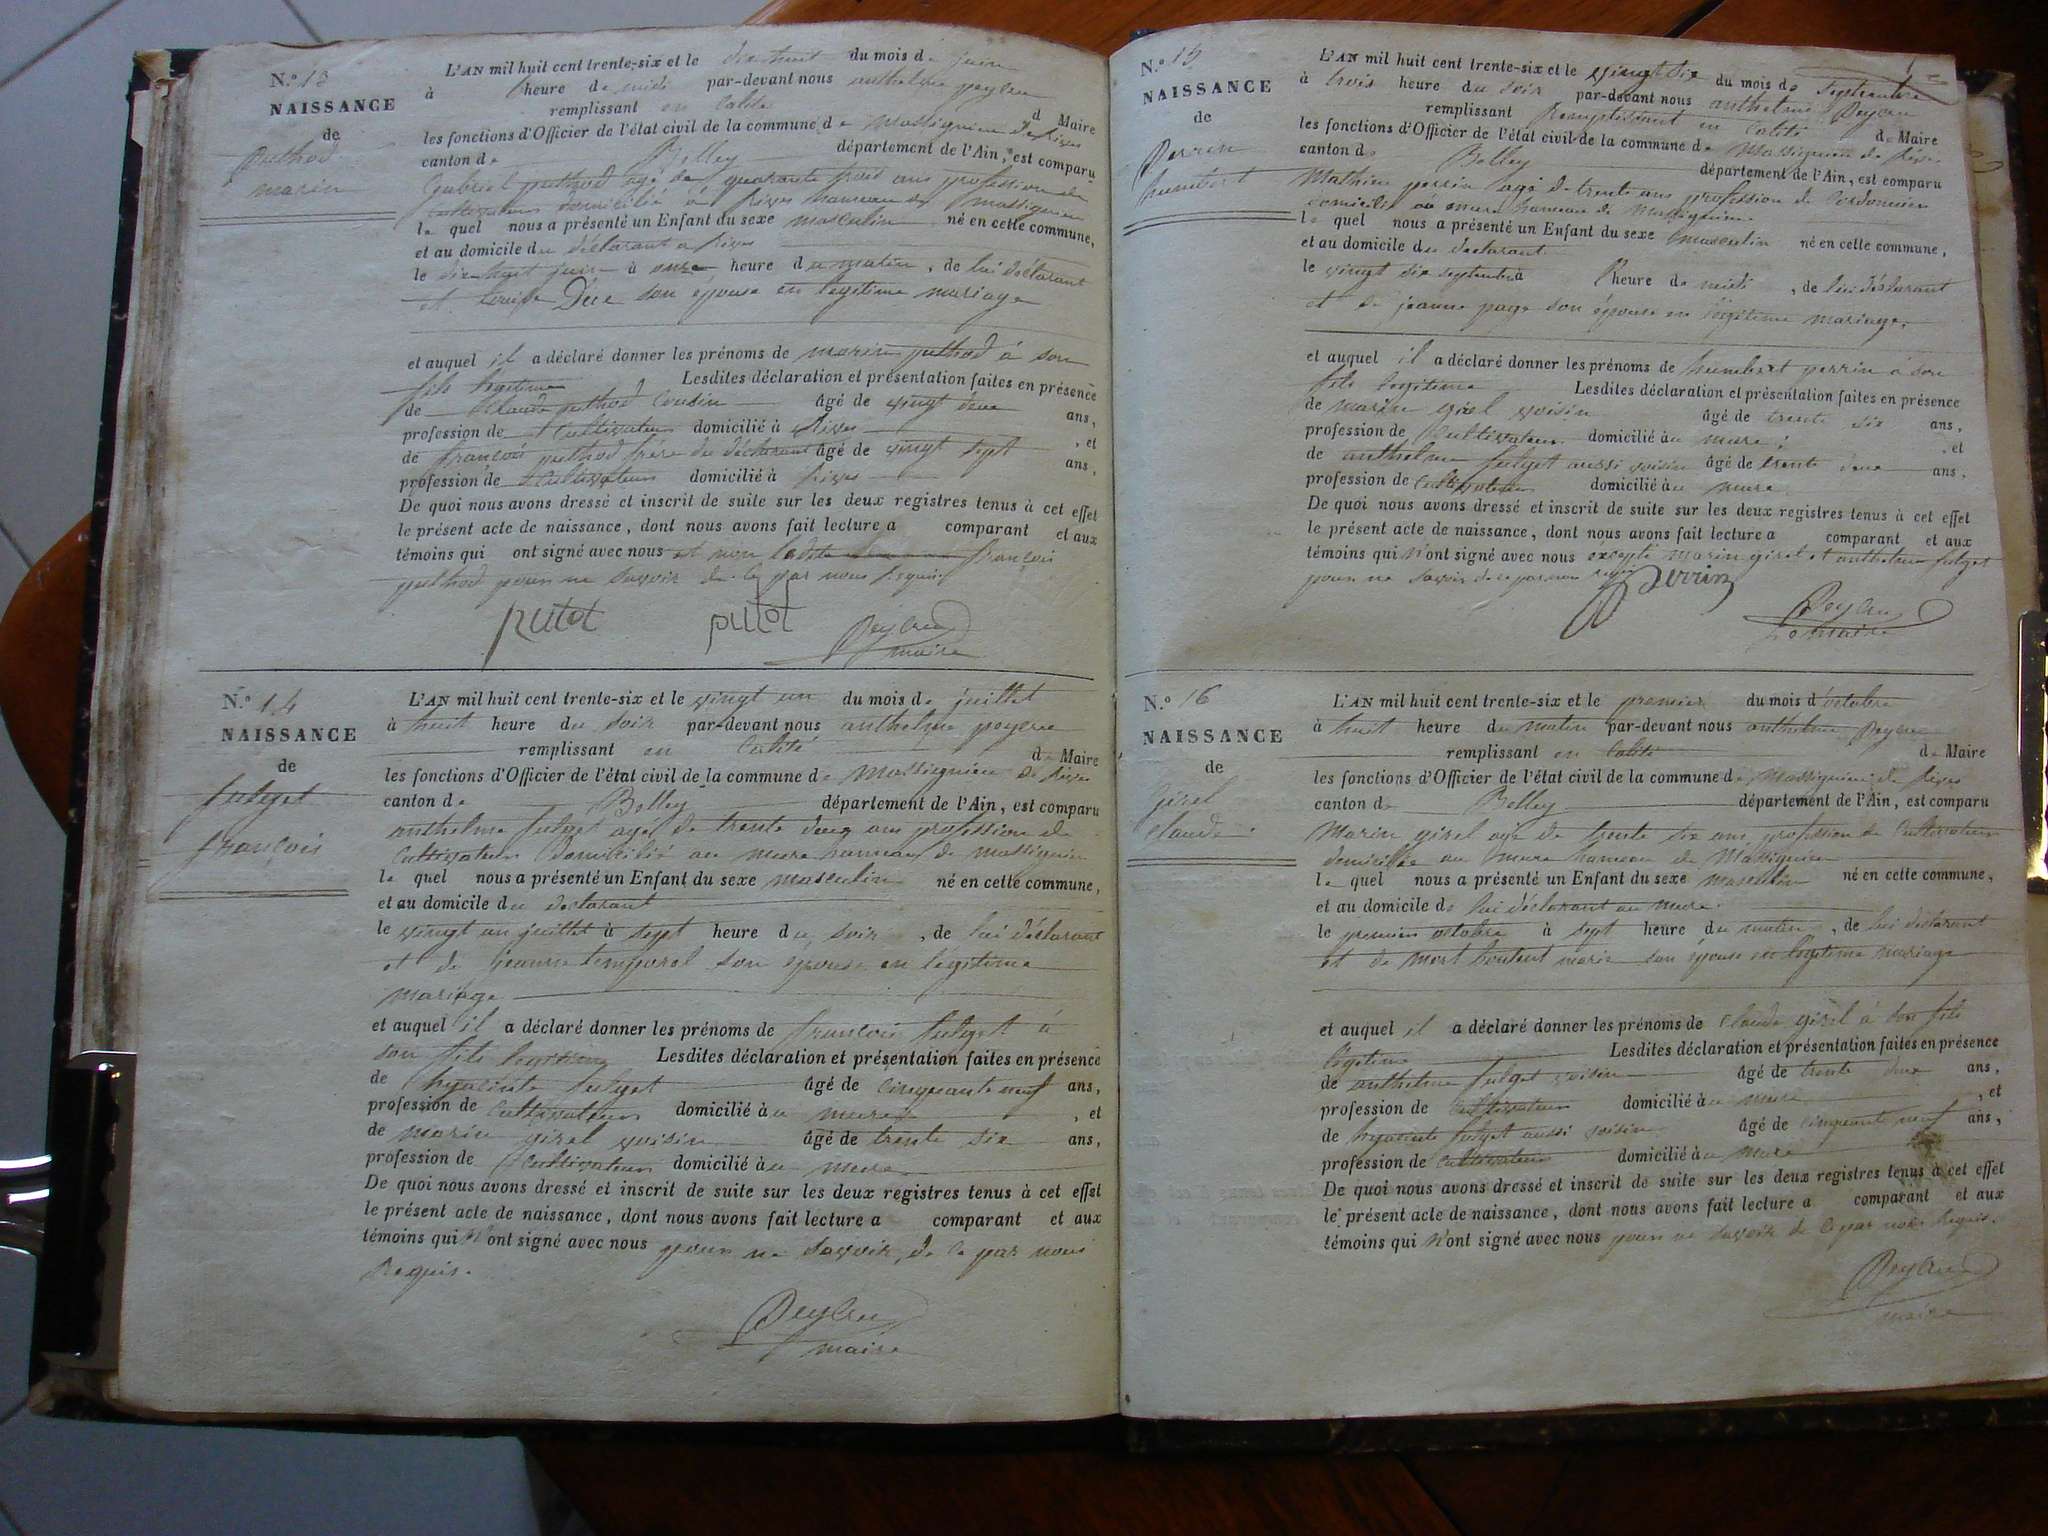 N.º 13
NAISSANCE
de
puthod
marin
L'AN mil huit cent trente-six et le dix huit du mois de juin
à heure de midi par-devant nous anthelme peyleu
remplissant en Calité d Maire
les fonctions d'Officier de l'état civil de la commune de massignieu de Rives
canton de Belley département de l'Ain, est comparu
Gabriel puthod agé de quarante trois ans profession de
Cultivateur domicilié à Rives hameau de massignieu
le quel nous a présenté un Enfant du sexe masculin né en cette commune,
et au domicile du déclarant a Rives
le dix huit juin à onze heure du matin, de lui déclarant
et son epouse en legitime mariage
et auquel il a déclaré donner les prénoms de marin puthod à son
fils legitime Lesdites déclaration et présentation faites en présence
de Claude puthod Cousin âgé de vingt deux ans,
profession de Cultivateur domicilié à Rives , et
de françois puthod frère du déclarant âgé de vingt sept ans,
profession de Cultivateur domicilié à Rives
De quoi nous avons dressé et inscrit de suite sur les deux registres tenus à cet effet
le présent acte de naissance, dont nous avons fait lecture a comparant et aux
témoins qui ont signé avec nous et non françois
puthod pour ne savoir de ce par nous Requis
putot putot Peyleu
maire
N.º 14
NAISSANCE
de
fulget
françois
L'AN mil huit cent trente-six et le vingt un du mois de juillet
à huit heure du soir par-devant nous anthelme peyleu
remplissant en Calité de Maire
les fonctions d'Officier de l'état civil de la commune de massignieu de Rives
canton de Belley département de l'Ain, est comparu
anthelme fulget agé de trente deux ans profession de
Cultivateur domicilié au mure hameau de massignieu
le quel nous a présenté un Enfant du sexe masculin né en cette commune,
et au domicile du declarant
le vingt un juillet à sept heure du soir, de lui déclarant
et de jeanne temporel son epouse en legitime
mariage
et auquel il a déclaré donner les prénoms de françois fulget à
son fils legitime Lesdites déclaration et présentation faites en présence
de hyacinte fulget âgé de cinquante neuf ans,
profession de Cultivateur domicilié au mure , et
de marin girel voisin âgé de trente six ans,
profession de Cultivateur domicilié au mure
De quoi nous avons dressé et inscrit de suite sur les deux registres tenus à cet effet
le présent acte de naissance, dont nous avons fait lecture a comparant et aux
témoins qui n'ont signé avec nous pour ne savoir de ce par nous
Requis.
Peyleu
maire
N.º 15
NAISSANCE
de
Perrin
humbert
L'AN mil huit cent trente-six et le vingt six du mois de Septembre
à trois heure du soir par-devant nous anthelme Peyleu
remplissant Remplissant en Calité de Maire
les fonctions d'Officier de l'état civil de la commune de Massignieu de Rives
canton de Belley département de l'Ain, est comparu
Mathieu perrin agé de trente ans profession de Cordonnier
domicilié au mure hameau de Massignieu
le quel nous a présenté un Enfant du sexe masculin né en cette commune,
et au domicile du declarant
le vingt six septembre à heure de midi, de lui déclarant
et de jeanne page son épouse en légitime mariage,
et auquel il a déclaré donner les prénoms de humbert perrin à son
fils legitime Lesdites déclaration et présentation faites en présence
de marin girel voisin âgé de trente six ans,
profession de Cultivateur domicilié au mure , et
de anthelme fulget aussi voisin âgé de trente deux ans,
profession de Cultivateur domicilié au mure
De quoi nous avons dressé et inscrit de suite sur les deux registres tenus à cet effet
le présent acte de naissance, dont nous avons fait lecture a comparant et aux
témoins qui n'ont signé avec nous excepté marin girel et anthelme fulget
pour ne savoir de ce par nous requis Perrin
Peyleu
maire
N.º 16
NAISSANCE
de
girel
claude
L'AN mil huit cent trente-six et le premier du mois d'octobre
à huit heure du matin par-devant nous anthelme Peyleu
remplissant en Calité de Maire
les fonctions d'Officier de l'état civil de la commune de Massignieu de Rives
canton de Belley département de l'Ain, est comparu
Marin girel agé de trente six ans profession de Cultivateur
domicilié au mure hameau de Massignieu
le quel nous a présenté un Enfant du sexe masculin né en cette commune,
et au domicile de lui déclarant au mure
le premier octobre à sept heure du matin, de lui déclarant
et de marie son épouse en legitime mariage
et auquel il a déclaré donner les prénoms de claude girel à son fils
legitime Lesdites déclaration et présentation faites en présence
de anthelme fulget voisin âgé de trente deux ans,
profession de Cultivateur domicilié au mure , et
de hyacinte fulget aussi voisin âgé de cinquante neuf ans,
profession de Cultivateur domicilié au mure
De quoi nous avons dressé et inscrit de suite sur les deux registres tenus à cet effet
le présent acte de naissance, dont nous avons fait lecture a comparant et aux
témoins qui n'ont signé avec nous pour ne savoir de ce par nous Requis.
Peyleu
maire